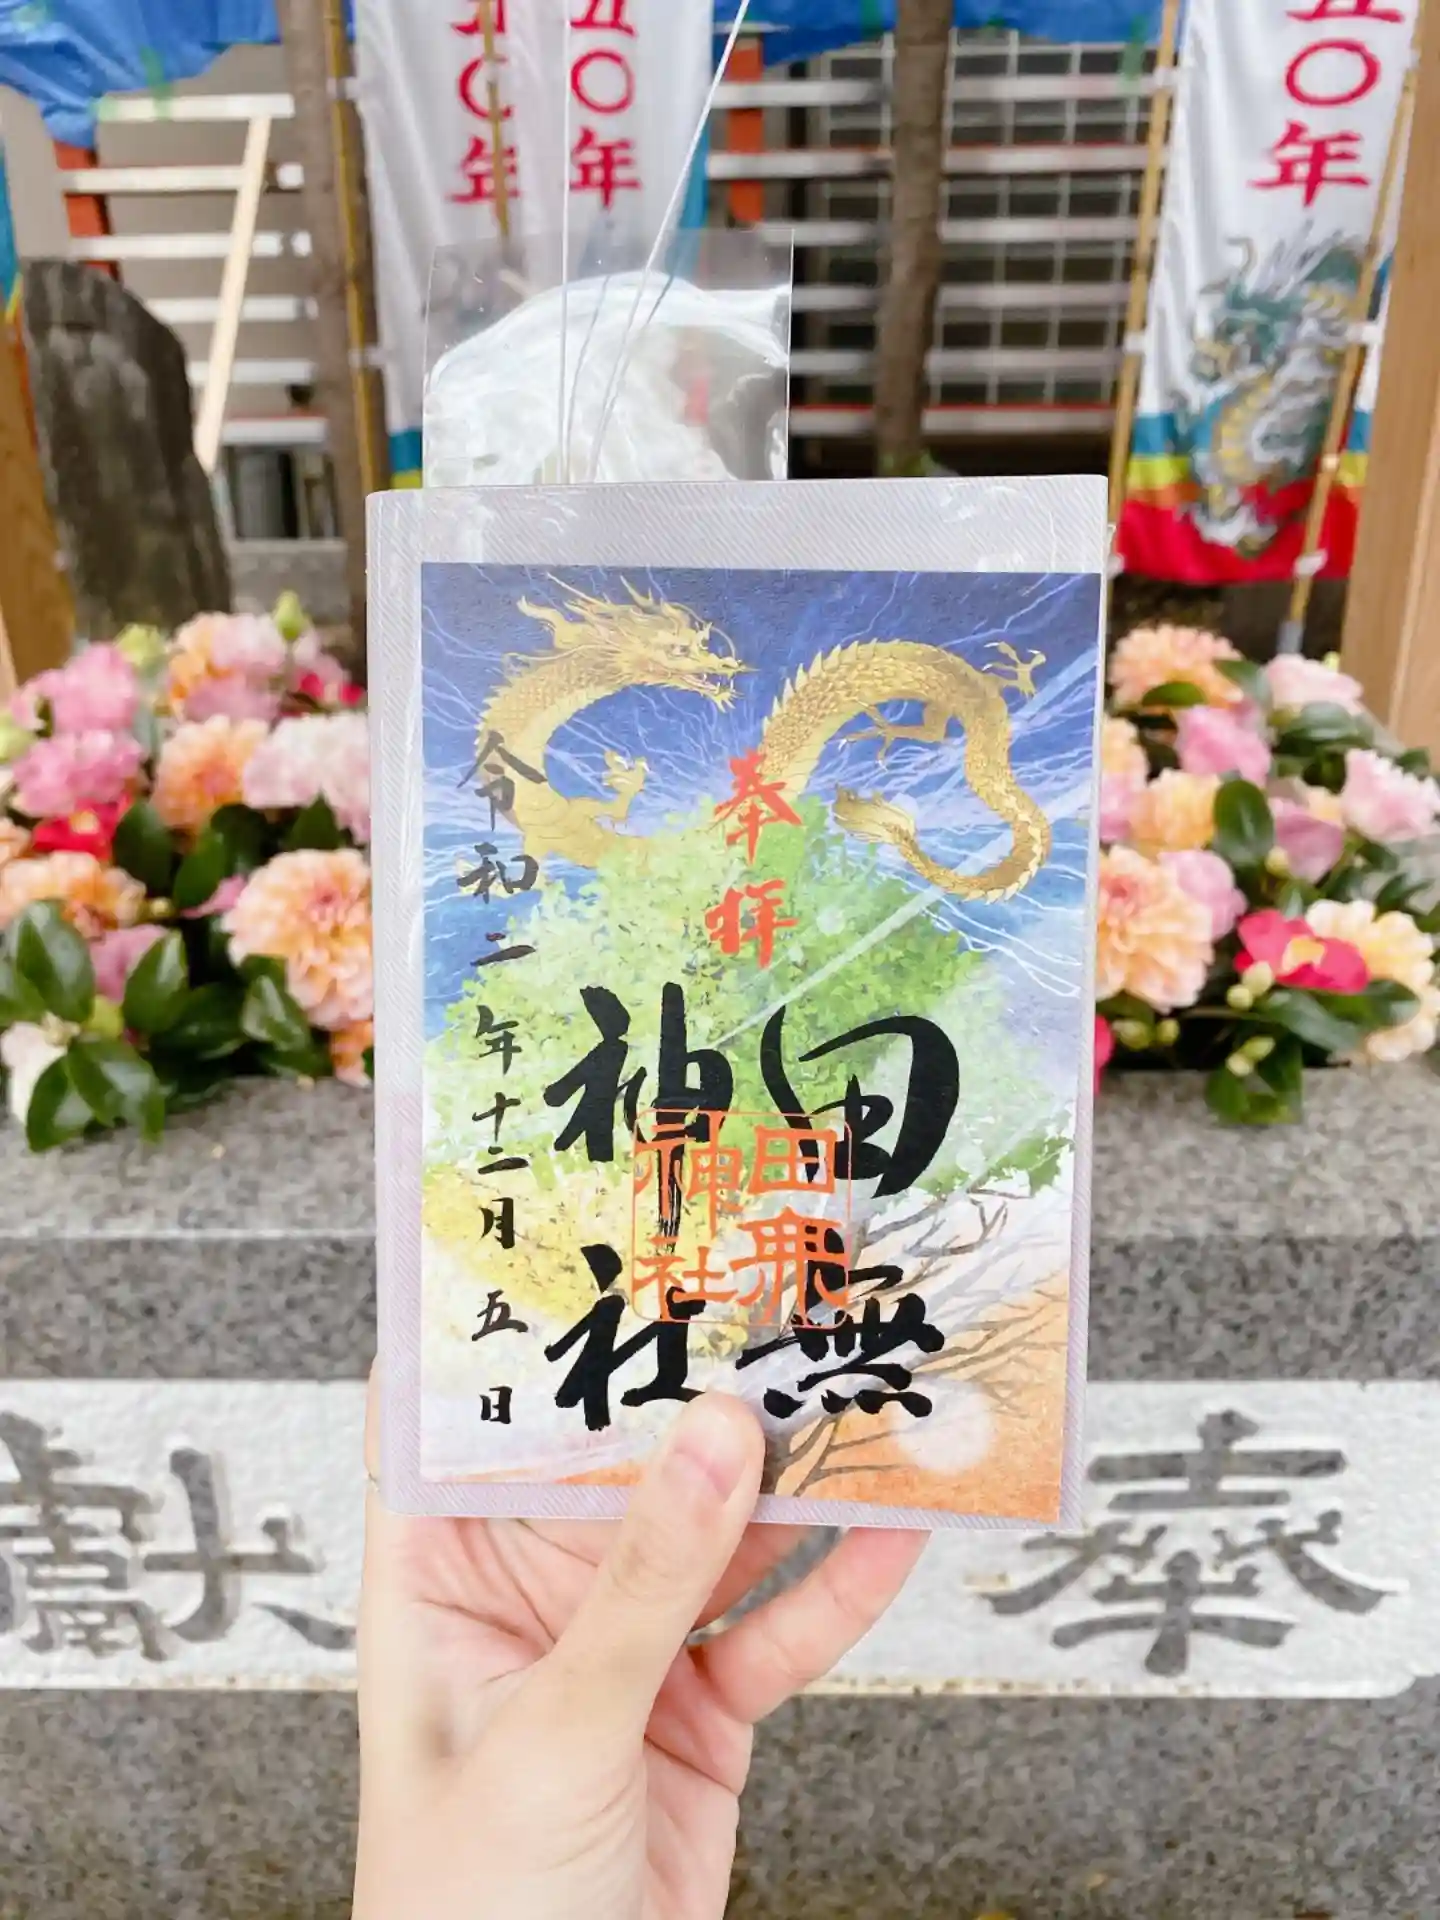 五〇年
五〇年
五〇年
奉拝
田無
神社
田無
神社
令和二年十二月五日
奉献